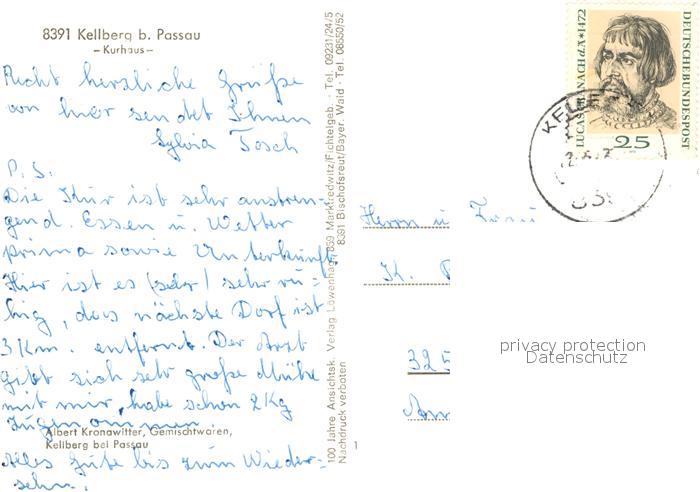 8391 Kellberg b. Passau
-Kurhaus-
Recht herzliche Grüße
von hier sendet Ihnen
Sylvia Tosch
P.S.
Die Kur ist sehr anstren-
gend. Essen u. Wetter
prima sowie Unterkunft.
Hier ist es (sehr) sehr ru-
hig, das nächste Dorf ist
3 Km. entfernt. Der Arzt
gibt sich sehr große Mühe
mit mir, habe schon 2 Kg
zugenommen.
Albert Kronawitter, Gemischtwaren,
Kellberg bei Passau
Alles Gute bis zum Wieder-
sehn.
100 Jahre Ansichtsk. Verlag Löwenhag, 859 Marktredwitz/Fichtelgeb. · Tel. 09231/24/5
Nachdruck verboten 8391 Bischofsreut/Bayer. Wald · Tel. 08550/52
1
LUCAS CRANACH d.Ä.*1472
DEUTSCHE BUNDESPOST
25
KELL
Herrn u Frau
K.
325
privacy protection
Datenschutz